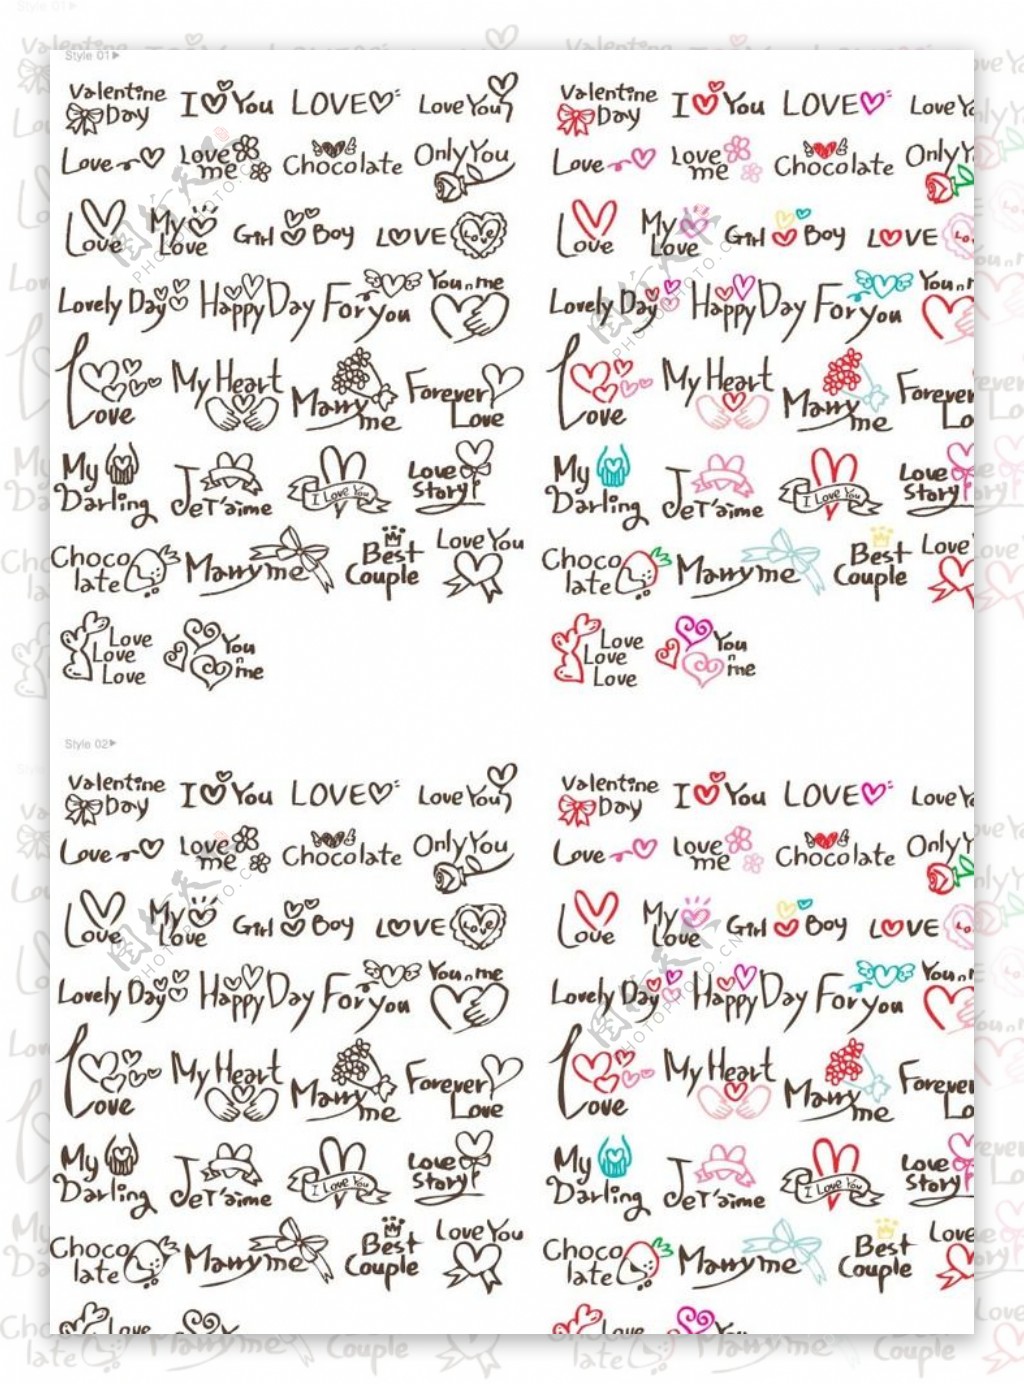 Style 01
Valentine Day I You LOVE Love You
Love Love me Chocolate Only You
Love My Love Girl Boy LOVE Love
Lovely Day Happy Day For you You n me
Love My Heart Marry me Forever Love
My Darling Je T'aime I Love You Love Story
Chocolate Marry me Best Couple Love You
Love Love Love You n me
Valentine Day I You LOVE Love Y
Love Love me Chocolate Only Y
Love My Love Girl Boy LOVE Lo
Lovely Day Happy Day For you You n
Love My Heart Marry me Forever Lo
My Darling Je T'aime I Love You Love Story
Chocolate Marry me Best Couple Love
Love Love Love You n me
Style 02
Valentine Day I You LOVE Love You
Love Love me Chocolate Only You
Love My Love Girl Boy LOVE Love
Lovely Day Happy Day For you You n me
Love My Heart Marry me Forever Love
My Darling Je T'aime I Love You Love Story
Chocolate Marry me Best Couple Love You
Love You
Valentine Day I You LOVE Love Y
Love Love me Chocolate Only Y
Love My Love Girl Boy LOVE Lo
Lovely Day Happy Day For you You n
Love My Heart Marry me Forever Lo
My Darling Je T'aime I Love You Love Story
Chocolate Marry me Best Couple Love
Love You